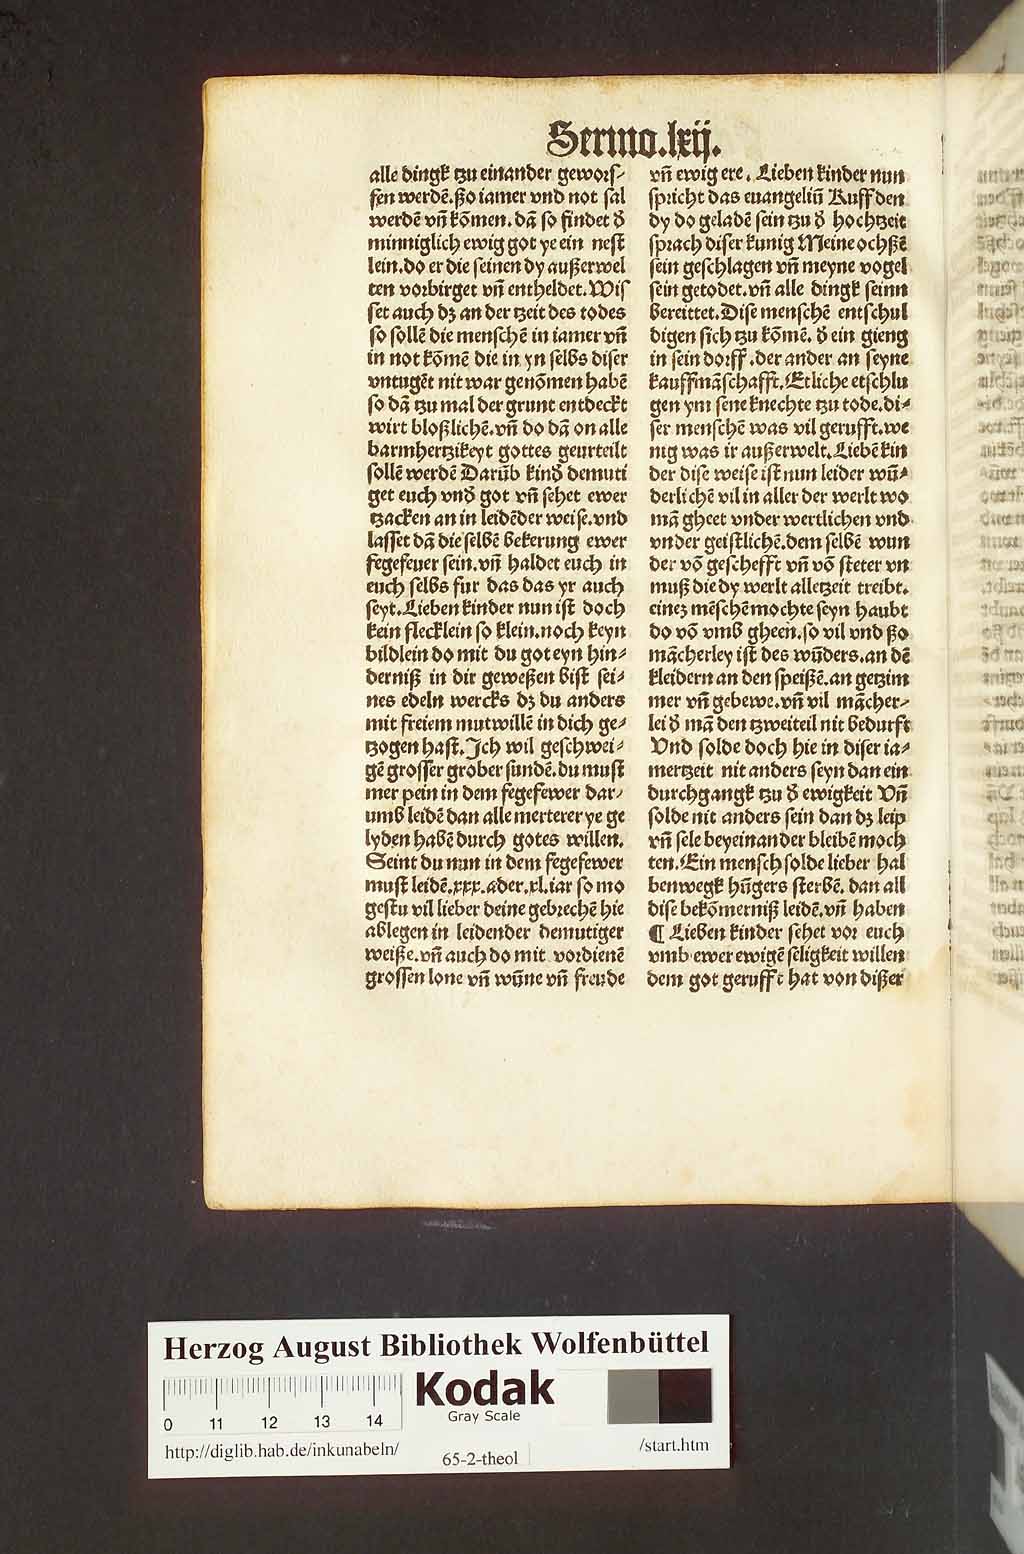 Sermo.lxij.
alle dingk tzu einander geworf-
fen werdē.ßo iamer vnd not sal
werdē vn̄ kōmen.dā so findet d̕
minniglich ewig got ye ein nest
lein.do er die seinen dy außerwel
ten vorbirget vn̄ entheldet.Wis
set auch dz an der tzeit des todes
so sollē die menschē in iamer vn̄
in not kōmē die in yn selbs diser
vntugēt nit war genōmen habē
so dā tzu mal der grunt entdeckt
wirt bloßlichē.vn̄ do dā on alle
barmhertzikeyt gottes geurteilt
sollē werdē Darūb kind̕ demuti
get euch vnd̕ got vn̄ sehet ewer
tzacken an in leidēder weise.vnd
lasset dā die selbē bekerung ewer
fegefeuer sein.vn̄ haldet euch in
euch selbs fur das das yr auch
seyt.Lieben kinder nun ist doch
kein flecklein so klein.noch keyn
bildlein do mit du got eyn hin-
derniß in dir geweßen bist sei-
nes edeln wercks dz du anders
mit freiem mutwillē in dich ge-
tzogen hast.Ich wil geschwei-
gē grosser grober sundē.du must
mer pein in dem fegefewer dar-
umb leidē dan alle merterer ye ge
lyden habē durch gotes willen.
Seint du nun in dem fegefewer
must leidē.xxx.ader.xl.iar so mo
gestu vil lieber deine gebrechē hie
ablegen in leidender demutiger
weiße.vn̄ auch do mit vordienē
grossen lone vn̄ wūne vn̄ freude
vn̄ ewig ere. Lieben kinder nun
spricht das euangeliū Ruff den
dy do geladē sein tzu d̕ hochtzeit
sprach diser kunig Meine ochßē
sein geschlagen vn̄ meyne vogel
sein getodet.vn̄ alle dingk seinn
bereittet.Dise menschē entschul
digen sich tzu kōmē. d̕ ein gieng
in sein dorff.der ander an seyne
kauffmāschafft.Etliche etschlu
gen ym sene knechte tzu tode.di-
ser menschē was vil gerufft.we
nig was ir außerwelt.Liebē kin
der dise weise ist nun leider wū-
derlichē vil in aller der werlt wo
mā gheet vnder wertlichen vnd
vnder geistlichē.dem selbē wun
der vō geschefft vn̄ vō steter vn
muß die dy werlt alletzeit treibt.
einez mēschē mochte seyn haubt
do vō vmb gheen.so vil vnd ßo
mācherley ist des wūders.an dē
kleidern an den speißē.an getzim
mer vn̄ gebewe.vn̄ vil mācher-
lei d̕ mā den tzweiteil nit bedurft
Vnd solde doch hie in diser ia-
mertzeit nit anders seyn dan ein
durchgangk tzu d̕ ewigkeit Vn̄
solde nit anders sein dan dz leip
vn̄ sele beyeinander bleibē moch
ten.Ein mensch solde lieber hal
benwegk hūgers sterbē. dan all
dise bekōmerniß leidē.vn̄ haben
¶ Lieben kinder sehet vor euch
vmb ewer ewigē seligkeit willen
dem got gerufft hat von dißer
Herzog August Bibliothek Wolfenbüttel
Kodak
Gray Scale
0 11 12 13 14
http://diglib.hab.de/inkunabeln/
65-2-theol
/start.htm